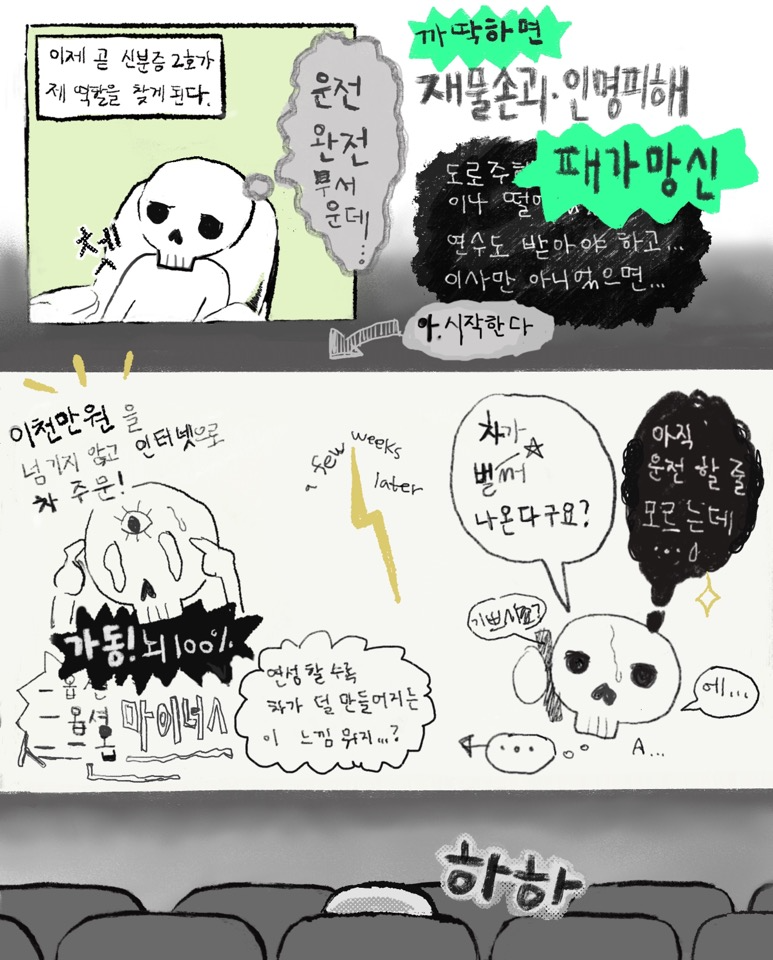 이제 곧 신분증 2호가
제 역할을 찾게 된다.
쳇
운전
완전
무서
운데...
까딱하면
재물손괴·인명피해
패가망신
도로주
이나 떨
연수도 받아야 하고...
이사만 아니었으면...
아. 시작한다
이천만원을
넘기지 않고 인터넷으로
차 주문!
가동! 뇌 100%
ㅡ 옵션
ㅡ 옵션
ㅡ 옵
마이너스
a few weeks
later
연성할수록
차가 덜 만들어지는
이 느낌 뭐지...?
차가
벌써
나온다구요?
아직
운전 할 줄
모르는데
....
기쁘시죠?
에...
...
A...
하하